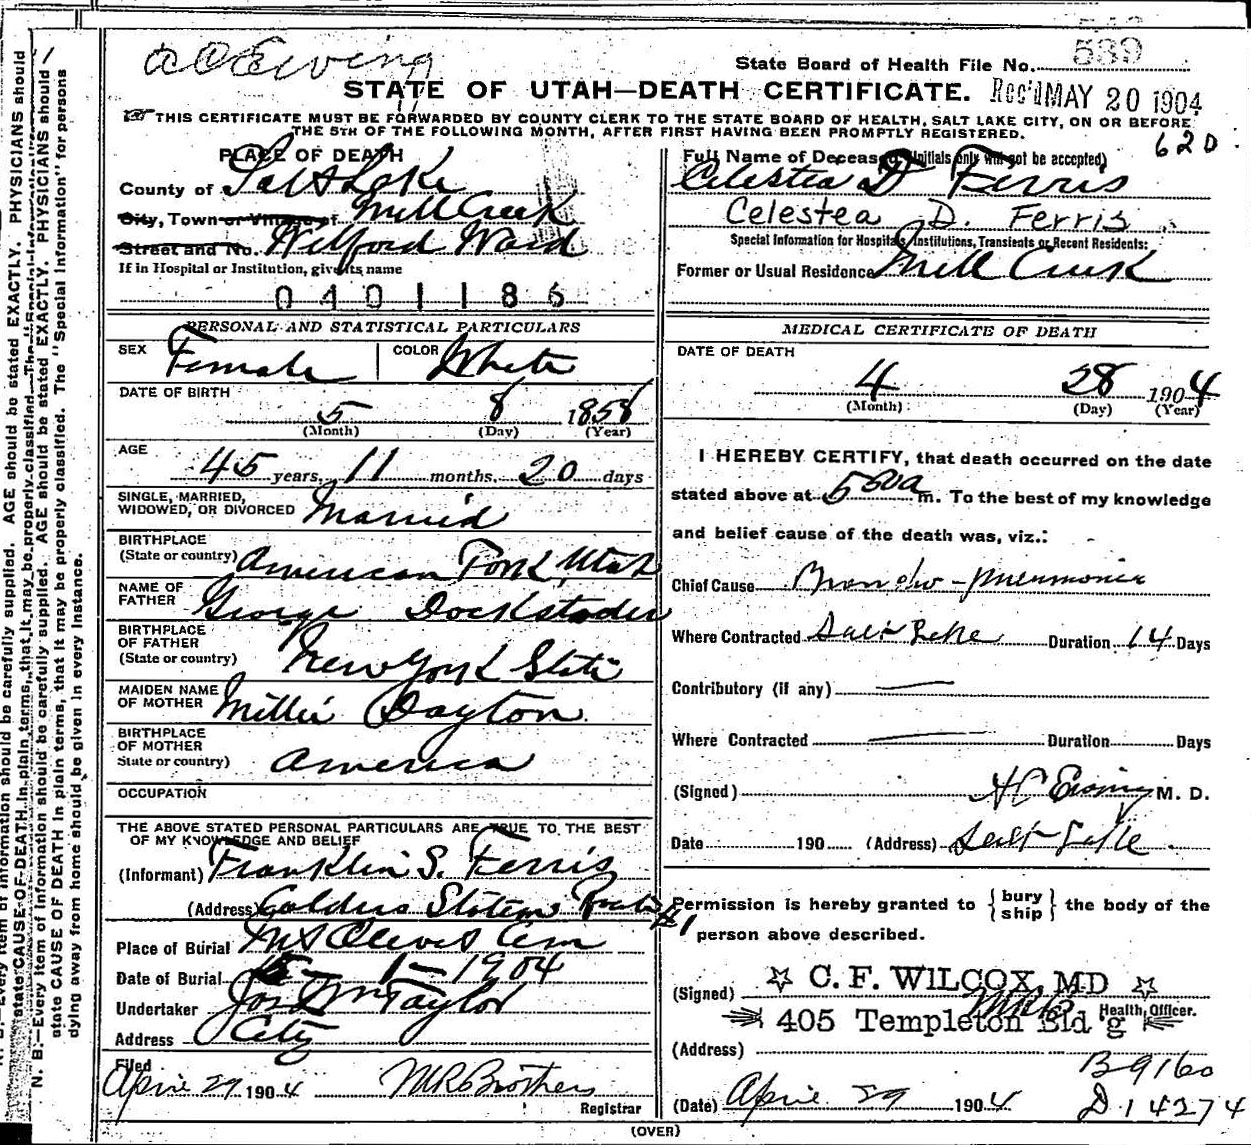 A C Ewing
State Board of Health File No. 539
STATE OF UTAH—DEATH CERTIFICATE. Rec'd MAY 20 1904
THIS CERTIFICATE MUST BE FORWARDED BY COUNTY CLERK TO THE STATE BOARD OF HEALTH, SALT LAKE CITY, ON OR BEFORE
THE 5TH OF THE FOLLOWING MONTH, AFTER FIRST HAVING BEEN PROMPTLY REGISTERED.
620
PLACE OF DEATH
County of Salt Lake
City, Town or Village of Mill Creek
Street and No. Wilford Ward
If in Hospital or Institution, give its name
0401186
Full Name of Deceased (Initials only will not be accepted)
Celestea D Ferris
Celestea D. Ferris
Special Information for Hospitals, Institutions, Transients or Recent Residents:
Former or Usual Residence Mill Creek
PERSONAL AND STATISTICAL PARTICULARS
SEX Female COLOR White
DATE OF BIRTH
5 8 1858
(Month) (Day) (Year)
AGE
45 years, 11 months, 20 days
SINGLE, MARRIED,
WIDOWED, OR DIVORCED Married
BIRTHPLACE
(State or country) American Fork, Utah
NAME OF
FATHER George Dockstader
BIRTHPLACE
OF FATHER
(State or country) New York State
MAIDEN NAME
OF MOTHER Millie Dayton
BIRTHPLACE
OF MOTHER
State or country) America
OCCUPATION
THE ABOVE STATED PERSONAL PARTICULARS ARE TRUE TO THE BEST
OF MY KNOWLEDGE AND BELIEF
(Informant) Franklin S. Ferris
(Address) Calders Station Route #1
Place of Burial Mt Olivet Cem
Date of Burial 5 - 1 - 1904
Undertaker Jos Wm Taylor
Address City
Filed
April 29 1904 M R Brothers
Registrar
MEDICAL CERTIFICATE OF DEATH
DATE OF DEATH
4 28 1904
(Month) (Day) (Year)
I HEREBY CERTIFY, that death occurred on the date
stated above at 5 00 a m. To the best of my knowledge
and belief cause of the death was, viz.:
Chief Cause Broncho-pneumonia
Where Contracted Salt Lake Duration 14 Days
Contributory (if any) —
Where Contracted — Duration Days
(Signed) A C Ewing M. D.
Date 190 (Address) Salt Lake
Permission is hereby granted to { bury ship } the body of the
person above described.
(Signed) ☆ C. F. WILCOX, MD ☆
MRB Health Officer.
405 Templeton Bld'g
(Address)
B9160
(Date) April 29 1904 D14274
(OVER)
N. B.—Every item of information should be carefully supplied. AGE should be stated EXACTLY. PHYSICIANS should
state CAUSE OF DEATH in plain terms, that it may be properly classified. The "Special Information" for persons
dying away from home should be given in every instance.